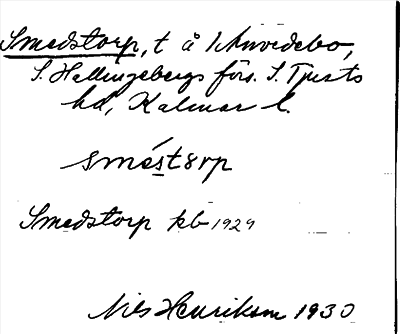 Smedstorp, t å 1 Anvidebo,
S. Hallingebergs förs. S. Tjusts
hd, Kalmar l.
sméstɜrp
Smedstorp kb 1929
Nils Henrikson 1930